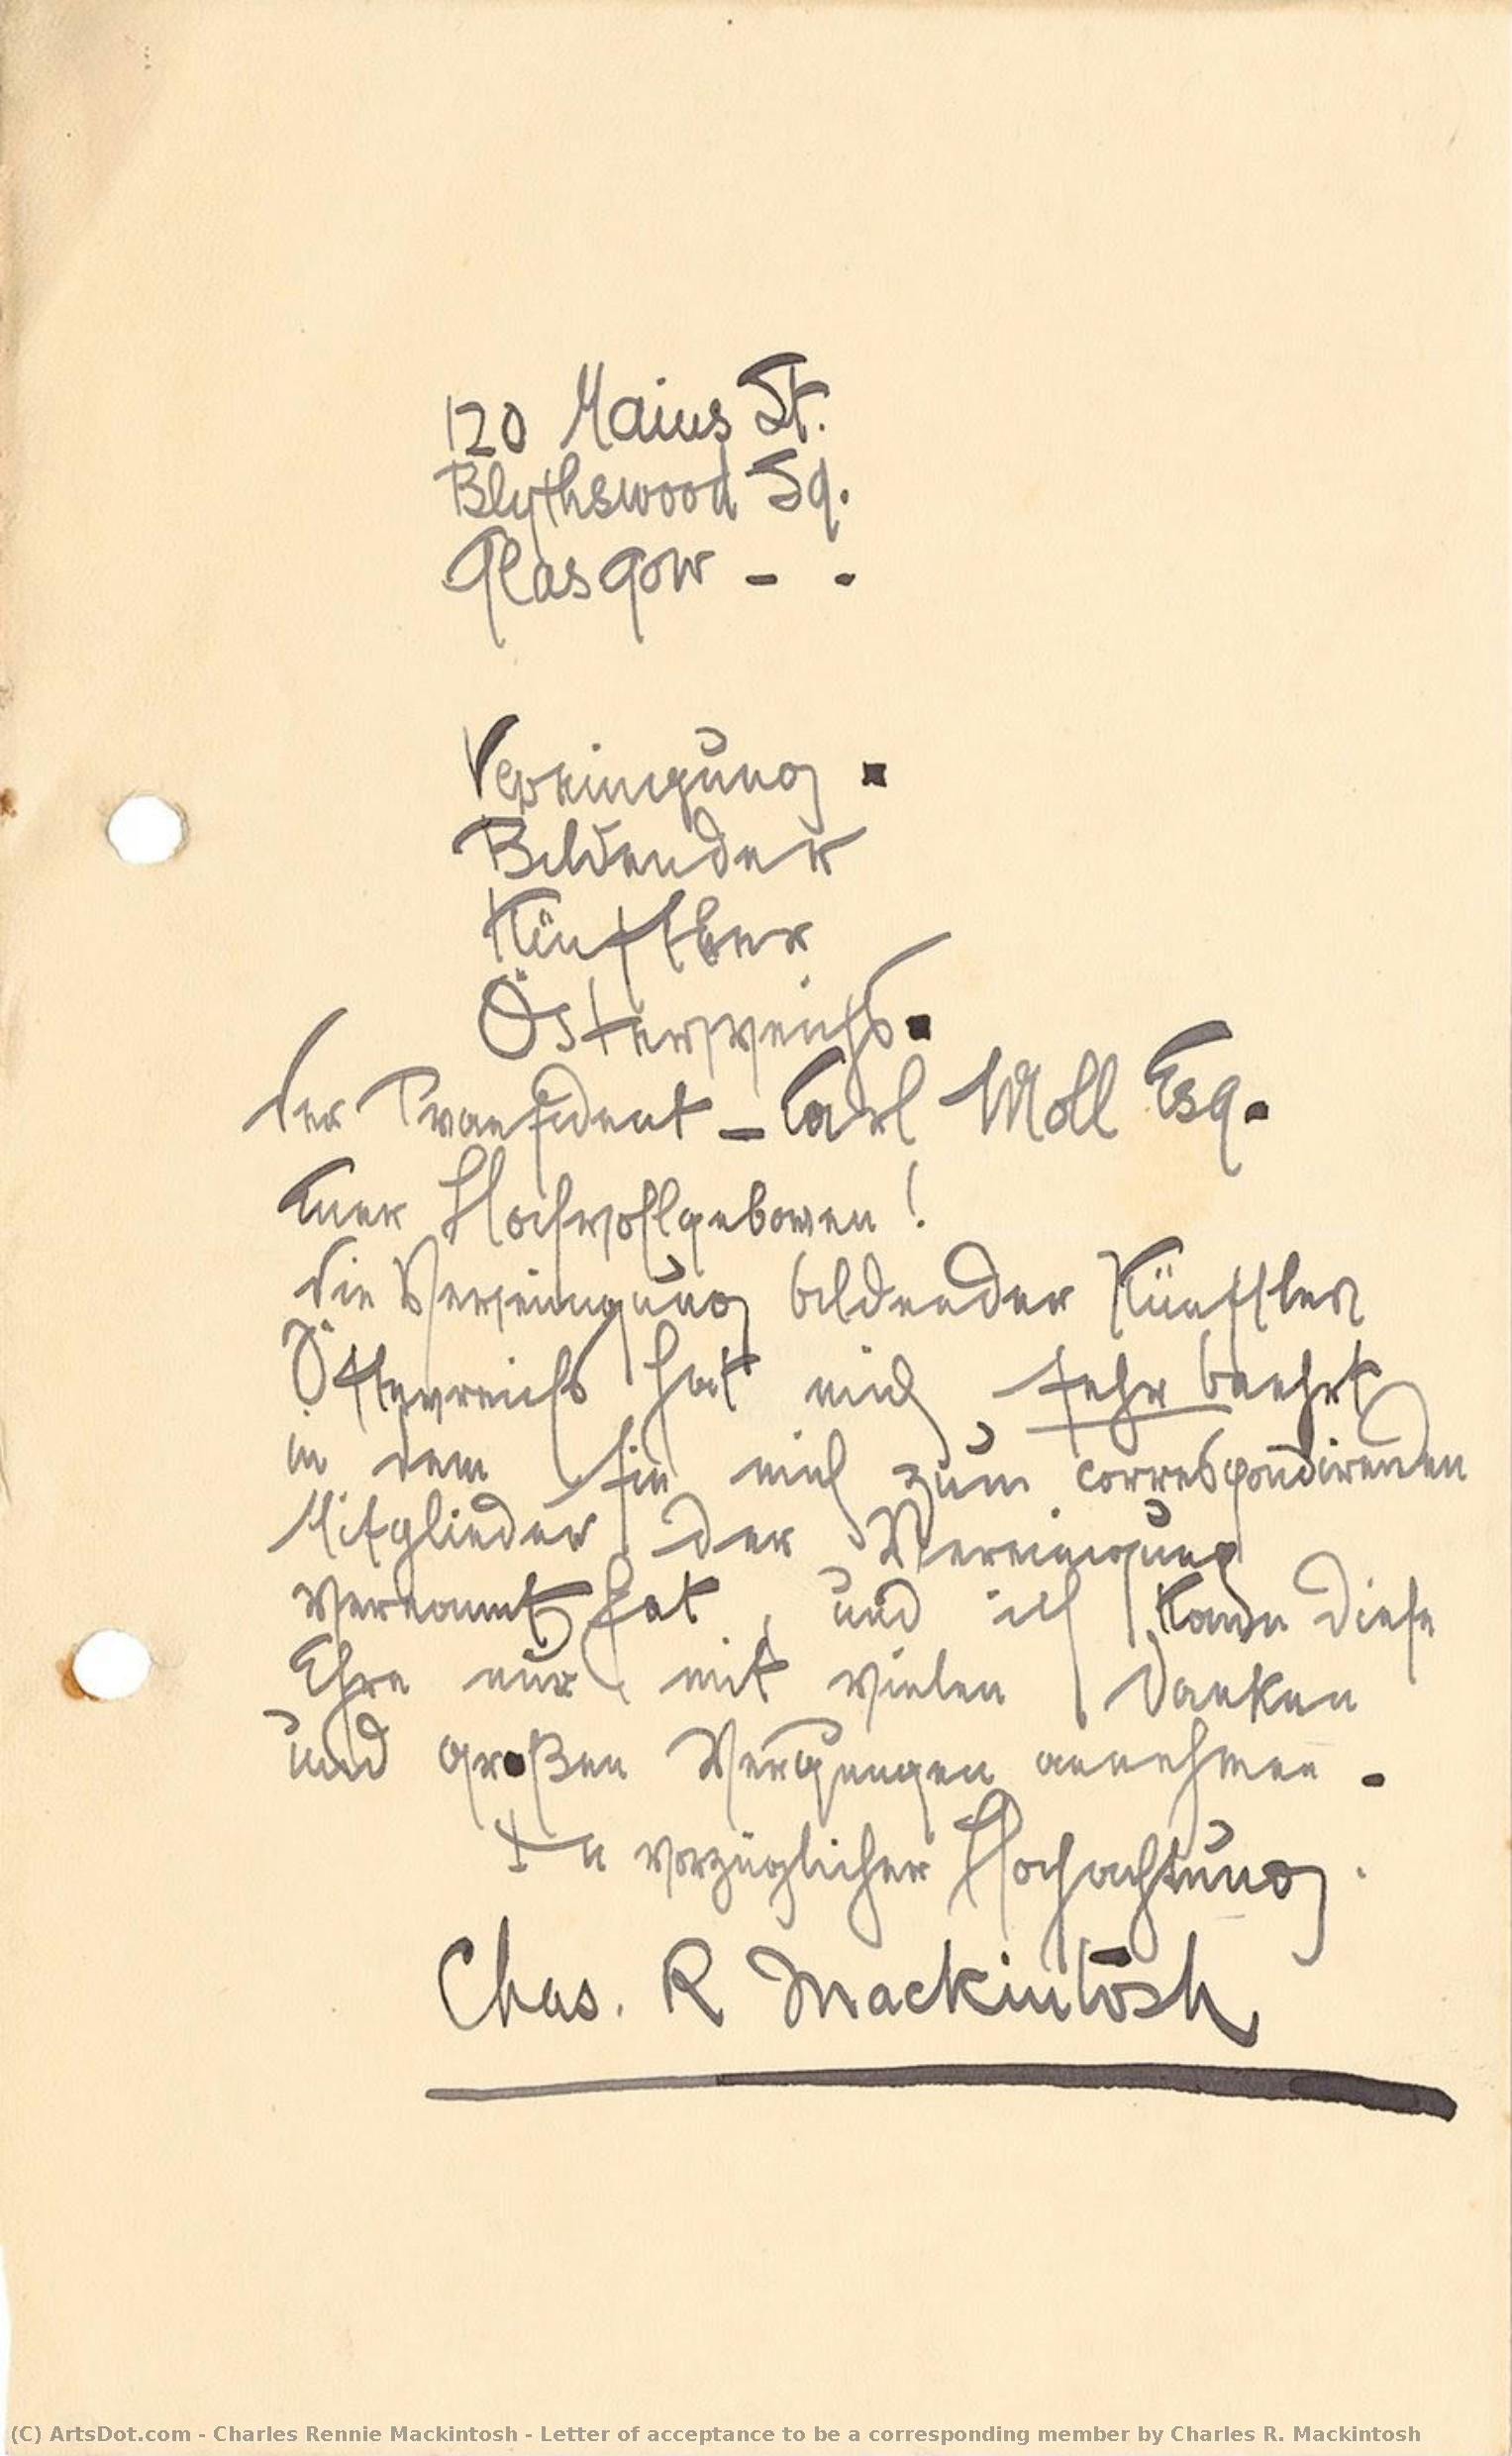 120 Mains St.
Blythswood Sq.
Glasgow - -
Vereinigung ▪
Bildender
Künstler
Österreichs ▪
Der Praesident - Carl Moll Esq.
Euer Hochwohlgeboren!
Die Vereinigung bildender Künstler
Österreichs hat mich sehr beehrt
in dem sie mich zum correspondirenden
Mitglieder der Vereinigung
hat, und ich kann diese
Ehre nur mit vielen Danken
und großen annehmen -
In vorzüglicher Hochachtung.
Chas. R Mackintosh
(C) ArtsDot.com - Charles Rennie Mackintosh - Letter of acceptance to be a corresponding member by Charles R. Mackintosh